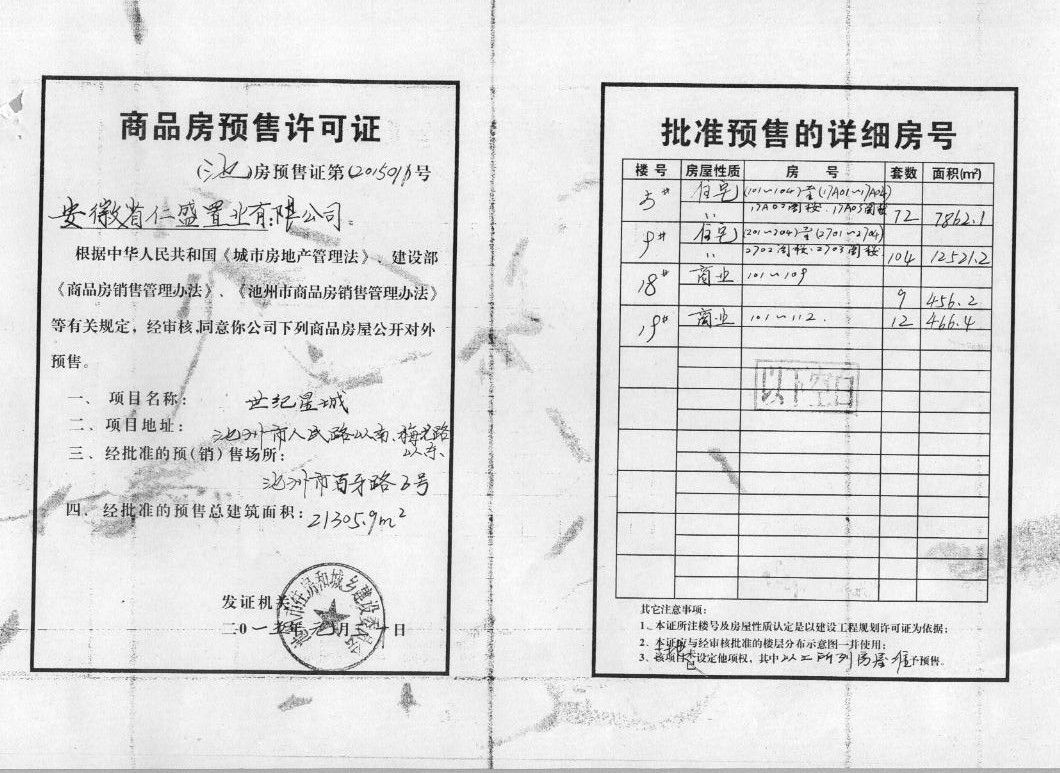 商品房预售许可证
(池)房预售证第(201501)号
安徽省仁盛置业有限公司：
根据中华人民共和国《城市房地产管理法》、建设部
《商品房销售管理办法》、《池州市商品房销售管理办法》
等有关规定，经审核,同意你公司下列商品房屋公开对外
预售。
一、 项目名称： 世纪星城
二、项目地址： 池州市人民路以南、梅龙路以东、
三、经批准的预(销)售场所：
池州市百牙路2号
四、经批准的预售总建筑面积：21305.9m²
市住房和城乡建设委员会
发证机关
二0一五年元月 一日
批准预售的详细房号
楼号 房屋性质 房 号 套数 面积(m²)
5# 住宅 (101～104)至(17A01～17A04)
〃 17A02阁楼、17A03阁楼 72 7862.1
9# 住宅 (201～204)至(2701～2704)
〃 2702阁楼、2703阁楼 104 12521.2
18# 商业 101～109
9 456.2
19# 商业 101～112. 12 466.4
以下空白
其它注意事项：
1、本证所注楼号及房屋性质认定是以建设工程规划许可证为依据；
2、本证应与经审核批准的楼层分布示意图一并使用；
3、该项目 土地 已设定他项权，其中以上所列房屋准予预售。